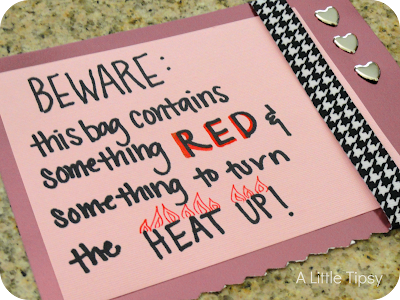 BEWARE:
this bag contains
something RED &
something to turn
the HEAT UP!
A Little Tipsy